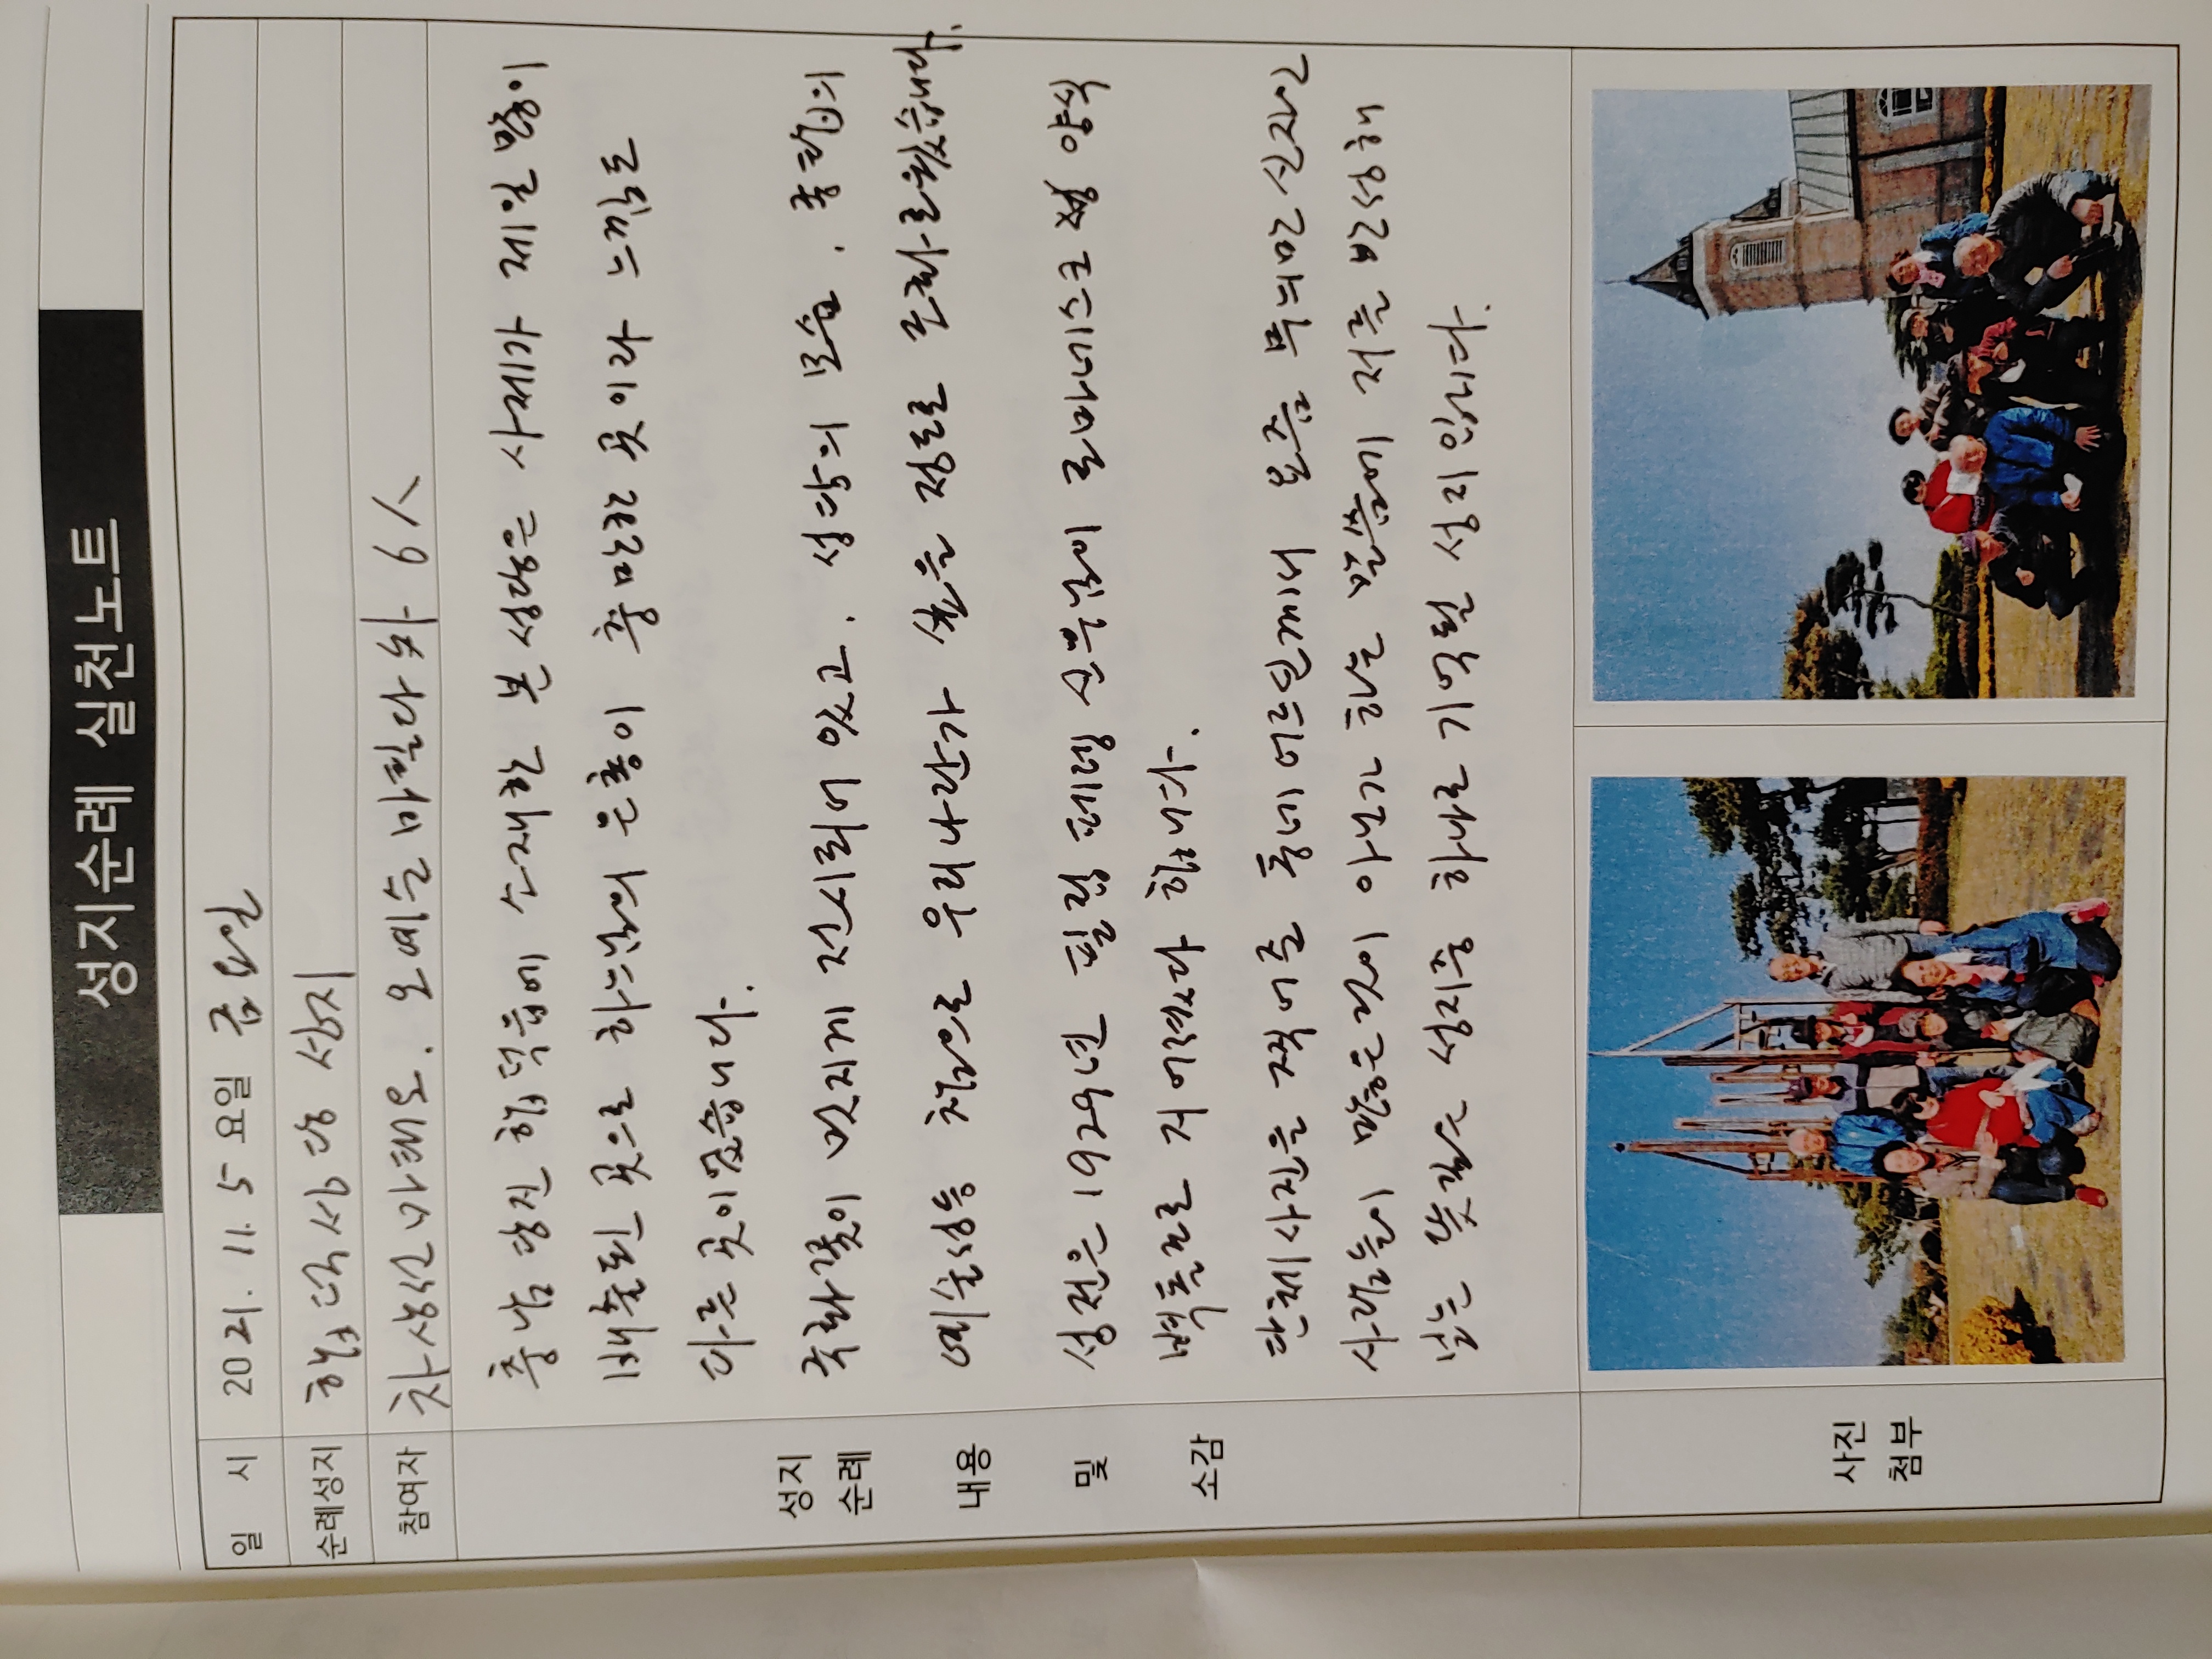 성지순례 실천노트
일 시 2021. 11. 5 요일 금요일
순례성지 합덕성당 성지
참여자 차상선 마태오. 오예순 마틸다 外 6人
성지
순례
내용
및
소감
충남 당진 합덕읍에 소재한 본 성당은 사제가 제일 많이
배출된 곳으로 하느님의 은총이 충만한 곳이라 느낌도
다른 곳이었습니다.
국화꽃이 멋지게 전시되어 있고. 성당의 모습, 종탑의
예술성등 참으로 우리나란가 싶을 정도로 조화로웠습니다.
성전은 1929년 필립 페렝 신부님이 로마네스크 양식
벽돌조로 지어졌다 합니다.
단체사진을 찍어준 동네 어르신께서 요즘 무늬만 신자인
사람들이 많은것이 아닌가 하는 말씀에 저를 반성해
보는 뜻깊은 성지중 하나로 기억될 성지입니다.
사진
첨부